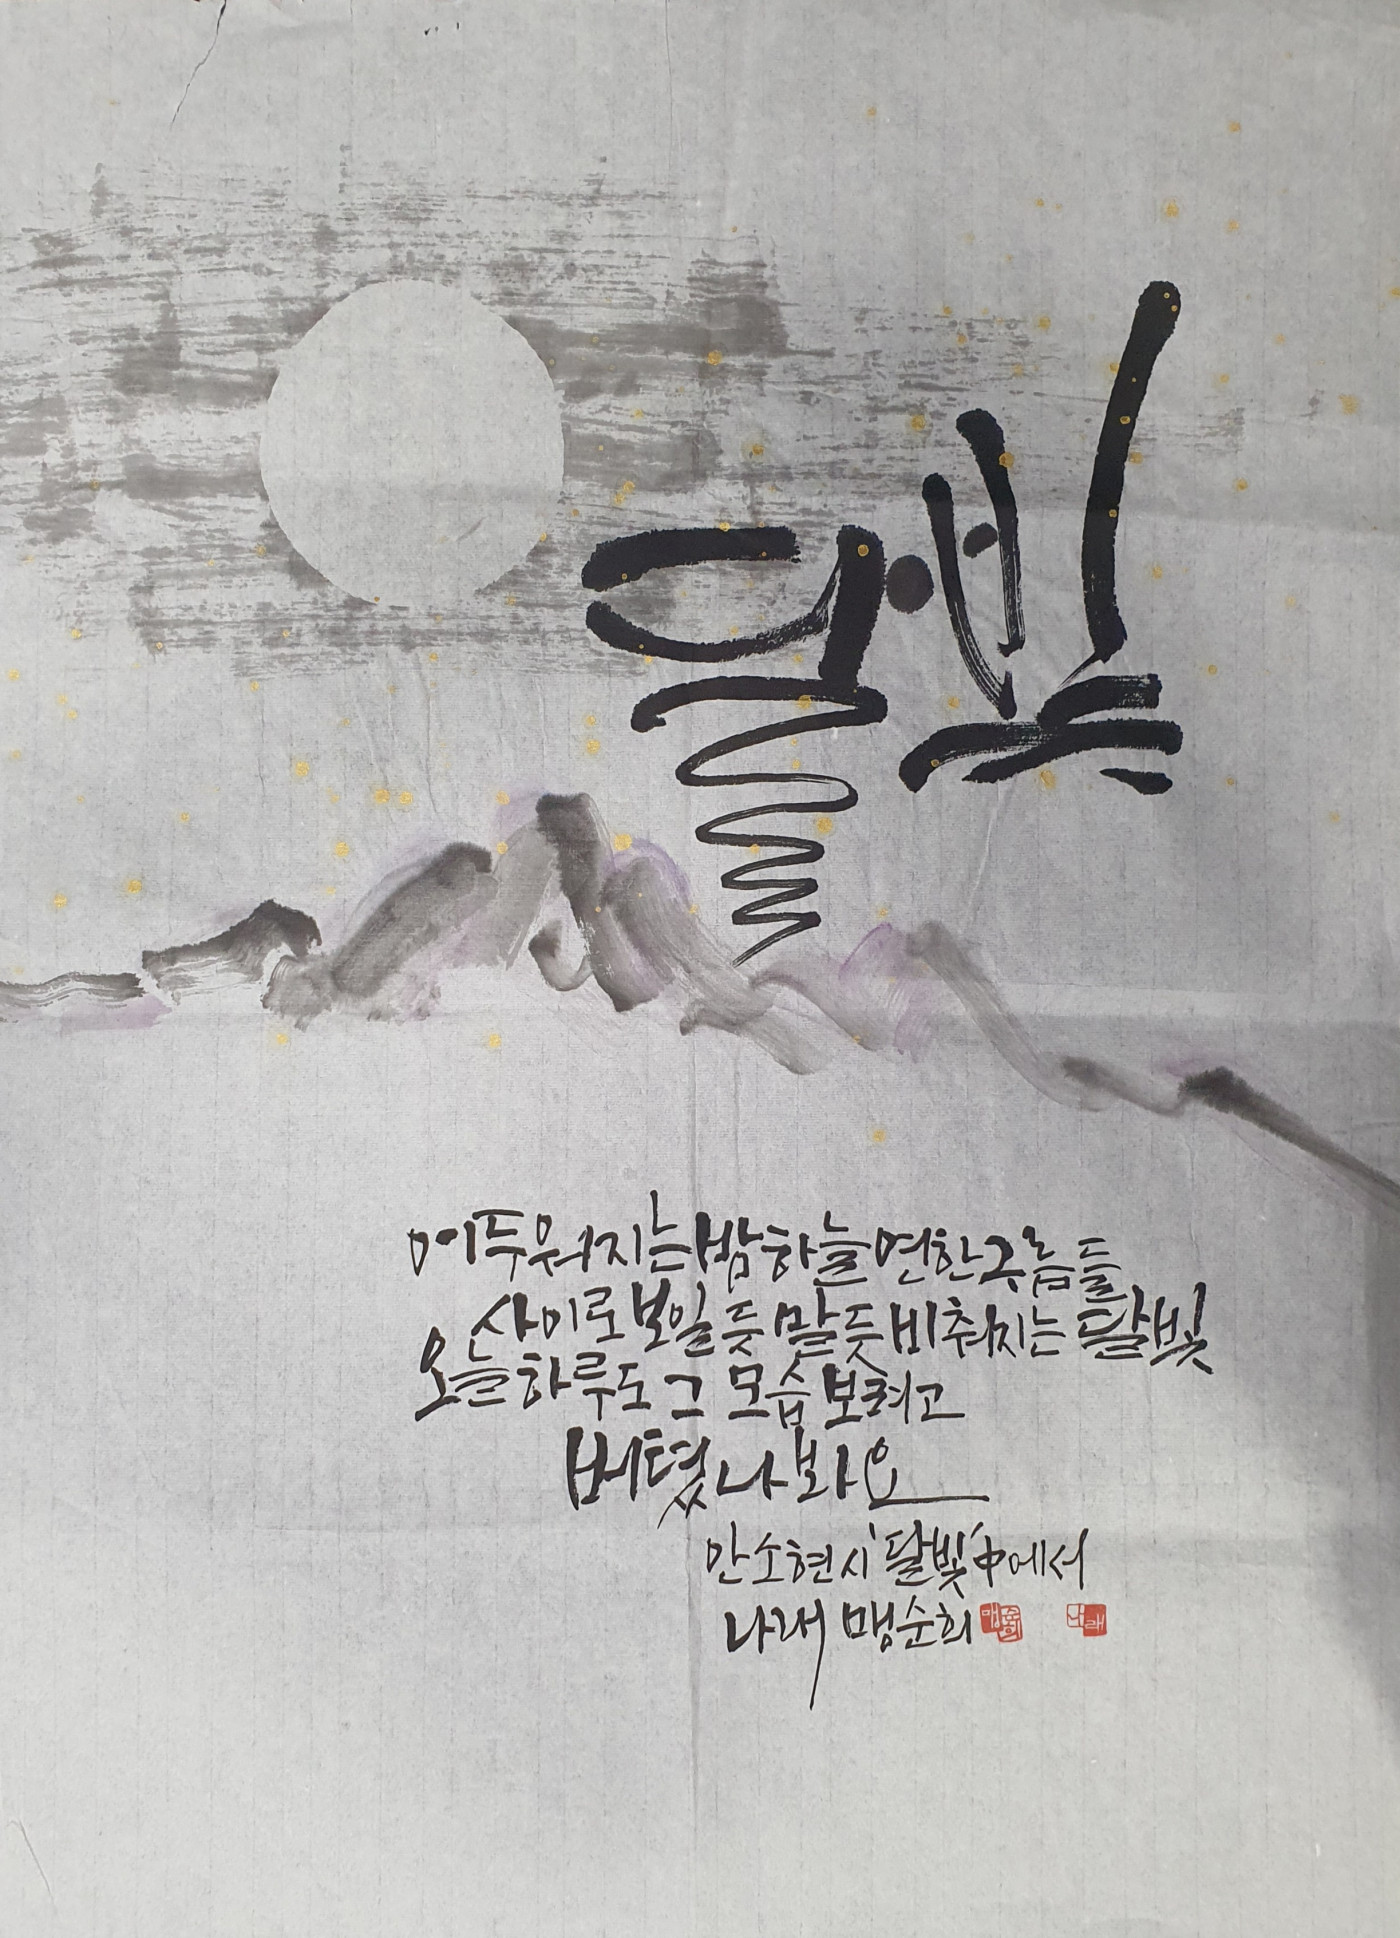 달빛
어두워지는 밤하늘 연한 구름들
사이로 보일듯 말듯 비춰지는 달빛
오늘 하루도 그 모습 보려고
버텼나봐요
안소현 시 '달빛' 中에서
나래 맹순희 맹순희 나래